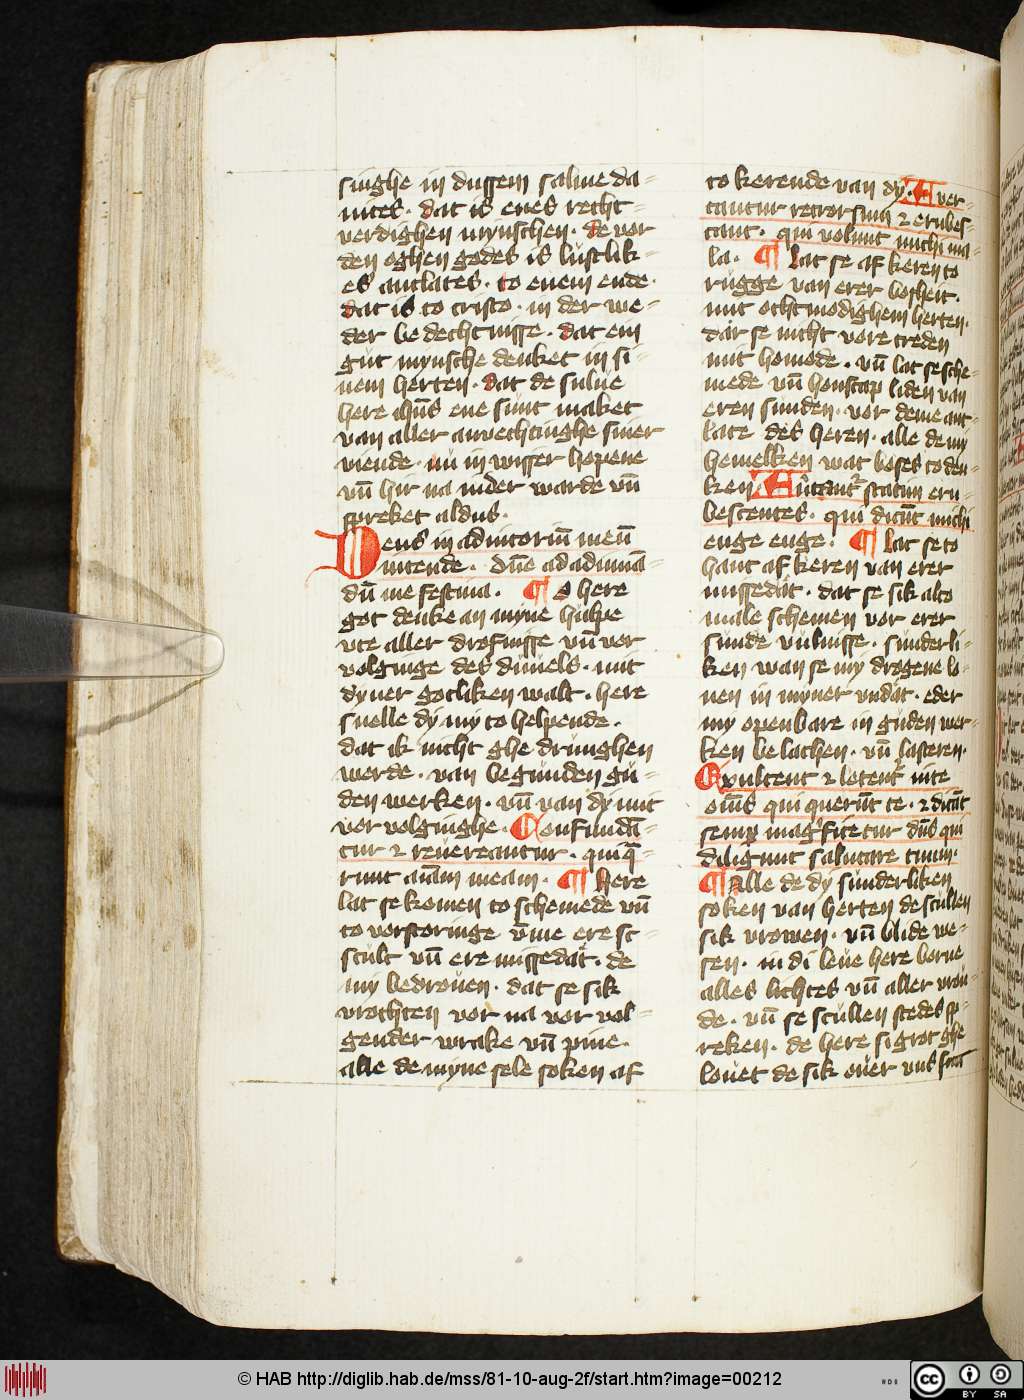 singhe in dussem salme da=
uites. dat is enes recht=
verdighen mynschen. de vor
den oghen godes is lustlik=
es antlates. to enem ende.
dat is to cristo. in der we=
der bedechtnisse. dat ein
gut mynsche denket in si=
nem herten. dat de sulue
here ihūs ene sunt maket
van aller anvechtinghe siner
viende. nu in wisser hopene
vn̄ hir na in der warde vn̄
spreket aldus.
Deus in adiutoriū meū
intende. dn̄e ad adiuuā=
dū me festina. ¶ O here
got denke an myne hulpe
vte aller drofnisse vn̄ vor
volginge des duuels. mit
dyner gotliken walt. here
snelle dy my to helpende.
dat ik nicht ghe drunghen
werde. van begunden gu=
den werken. vn̄ van dy mit
vor volginghe. Confundā=
tur ⁊ reuereantur. qui q̄=
runt aīam meam. ¶ Here
lat se komen to schemede vn̄
to vorstoringe vm̄e ere sc=
scult vn̄ ere missedat. de
my bedrouen. dat se sik
vrochten vor na vor vol=
gender wrake vn̄ pine.
alle de myne sele soken af
to kerende van dy. Auer=
tantur retrorsum ⁊ erubes=
cant. qui volunt michi ma=
la. ¶ Lat se af keren to
rugge van erer bosheit.
mit othmodighem herten.
dar se nicht vore treden
mit homode. vn̄ lat se sche=
mede vn̄ honscap liden van
eren sunden. vor deme ant=
late des heren. alle de my
hemelken wat boses to den=
ken. Auertant᷑ statim eru=
bescentes. qui dicūt michi
euge euge. ¶ Lat se to
hant af keren van erer
missedat. dat se sik alto
male schemen vor erer
sunde vulnisse. sunderli=
ken wan se my drogene lo=
uen in myner vndat. eder
my openbare in guden wer=
ken belachen. vn̄ lasteren.
Exultent ⁊ letent᷑ in te
om̄s qui querūt te. ⁊ dicāt
semꝑ magͥficetur dn̄s qui
diligunt salutare tuum.
¶ Alle de dy sunderliken
soken van herten de scullen
sik vrowen. vn̄ blide we=
sen. in di leue here borne
alles lichtes vn̄ aller vrou=
de. vn̄ se scullen stedes sp=
reken. de here si grot ghe
louet de sik ouer vns
© HAB http://diglib.hab.de/mss/81-10-aug-2f/start.htm?image=00212
CC BY SA